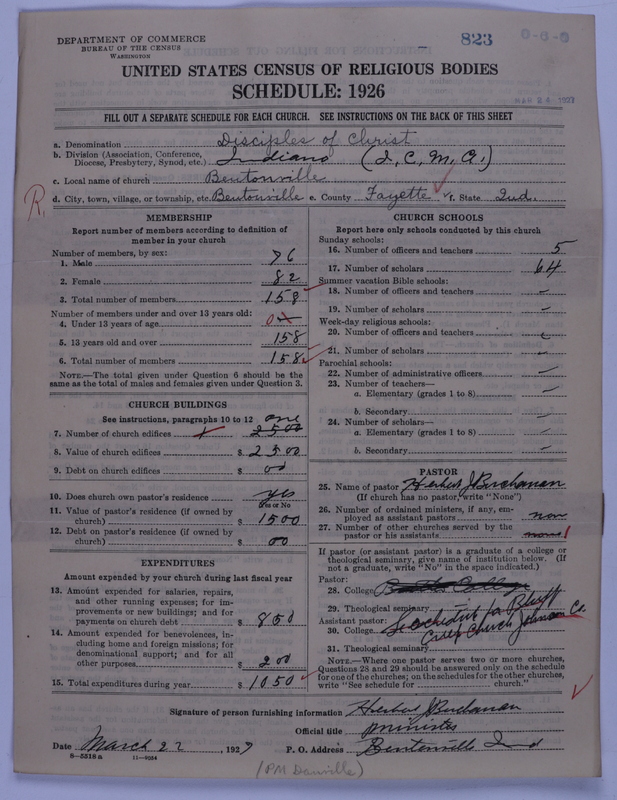 DEPARTMENT OF COMMERCE
BUREAU OF THE CENSUS
WASHINGTON
823
6-6-6
UNITED STATES CENSUS OF RELIGIOUS BODIES
SCHEDULE: 1926
MAR 24 1927
FILL OUT A SEPARATE SCHEDULE FOR EACH CHURCH. SEE INSTRUCTIONS ON THE BACK OF THIS SHEET
a. Denomination Disciples of Christ
b. Division (Association, Conference, Diocese, Presbytery, Synod, etc.) Indiana (I. C. M. A.)
c. Local name of church Bentonville
d. City, town, village, or township, etc. Bentonville e. County Fayette f. State Ind.
R.
MEMBERSHIP
Report number of members according to definition of
member in your church
Number of members, by sex:
1. Male 76
2. Female 82
3. Total number of members 158
Number of members under and over 13 years old:
4. Under 13 years of age 0
5. 13 years old and over 158
6. Total number of members 158
NOTE.—The total given under Question 6 should be
same as the total of males and females given under Question 3.
CHURCH BUILDINGS
See instructions, paragraphs 10 to 12 one
7. Number of church edifices 2500
8. Value of church edifices $ 2500
9. Debt on church edifices $ 00
10. Does church own pastor's residence yes
Yes or No
11. Value of pastor's residence (if owned by
church) $ 1500
12. Debt on pastor's residence (if owned by
church) $ 00
EXPENDITURES
Amount expended by your church during last fiscal year
13. Amount expended for salaries, repairs,
and other running expenses; for im-
provements or new buildings; and for
payments on church debt $ 850
14. Amount expended for benevolences, in-
cluding home and foreign missions; for
denominational support; and for all
other purposes $ 200
15. Total expenditures during year $ 1050
CHURCH SCHOOLS
Report here only schools conducted by this church
Sunday schools:
16. Number of officers and teachers 5
17. Number of scholars 64
Summer vacation Bible schools:
18. Number of officers and teachers –
19. Number of scholars –
Week-day religious schools:
20. Number of officers and teachers –
21. Number of scholars –
Parochial schools:
22. Number of administrative officers –
23. Number of teachers—
a. Elementary (grades 1 to 8) –
b. Secondary –
24. Number of scholars—
a. Elementary (grades 1 to 8) –
b. Secondary –
PASTOR
25. Name of pastor Herbert J Buchanan
(If church has no pastor, write "None")
26. Number of ordained ministers, if any, em-
ployed as assistant pastors non
27. Number of other churches served by the
pastor or his assistants none 1
If pastor (or assistant pastor) is a graduate of a college or
theological seminary, give name of institution below. (If
not a graduate, write "No" in the space indicated.)
Pastor:
28. College College
29. Theological seminary –
Assistant pastor: See schedule for Bluff
30. College Creek Church Johnson Co.
31. Theological seminary
NOTE.—Where one pastor serves two or more churches,
Questions 28 and 29 should be answered only on the schedule
for one of the churches; on the schedules for the other churches,
write "See schedule for church."
Signature of person furnishing information Herbert J Buchanan
Official title minister
Date March 22, 1927 P. O. Address Bentonville Ind
8—5518 a 11—9034
(PM Danville)